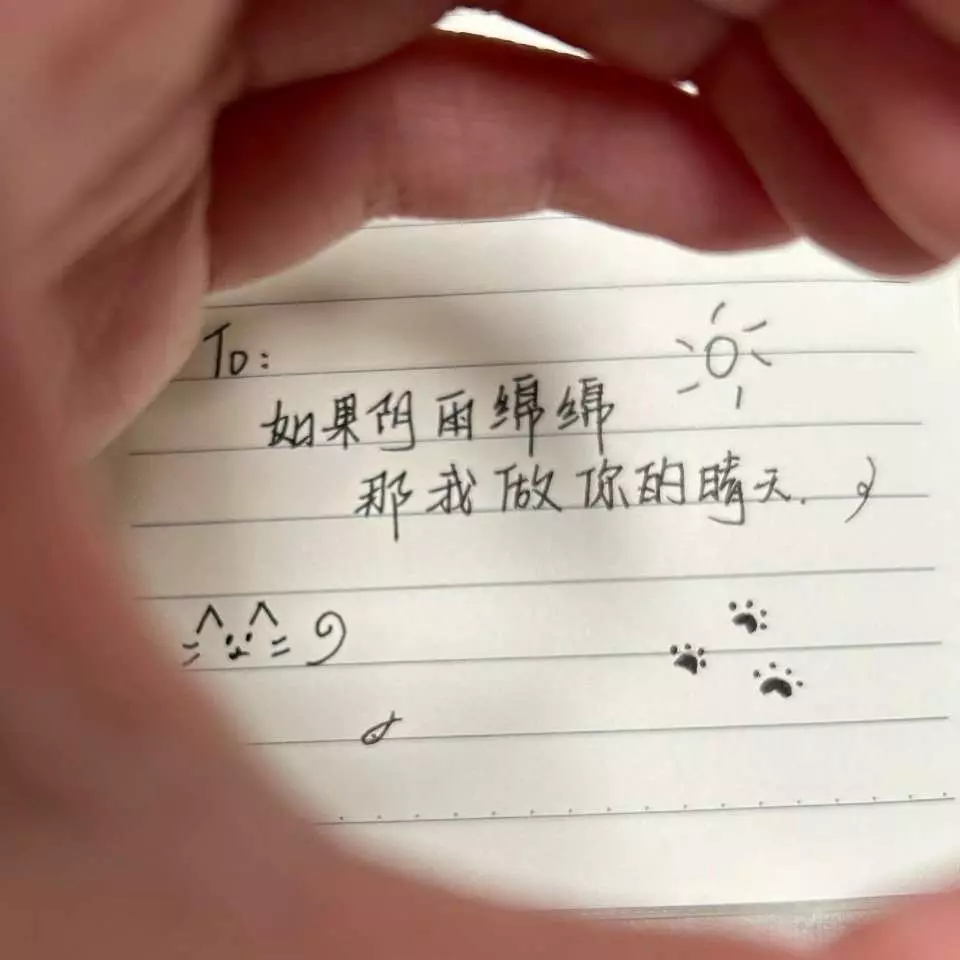 To:
如果阴雨绵绵
那我做你的晴天.